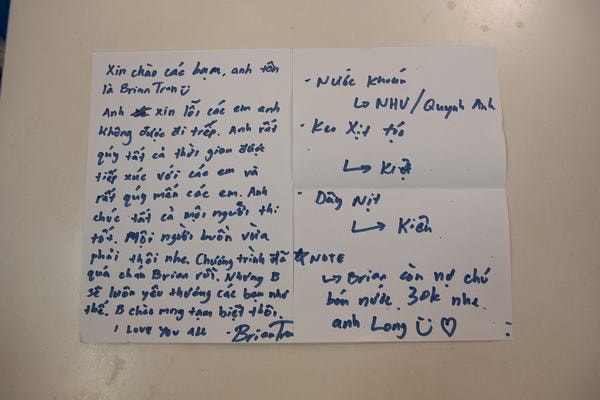 Xin chào các bạm, anh tên
là Brian Tran ü
Anh xin lỗi các em anh
không được đi tiếp. Anh rất
quý tất cả thời gian được
tiếp xúc với các em và
rất quý mến các em. Anh
chúc tất cả mội người thi
tốt. Mội người buồn vừa
phải thôi nhe. Chương trình đã
quá chán Brian rồi. Nhưng B
sẽ luôn yêu thương các bạn như
thế. B chào mng tạm biệt thôi.
I LOVE YOU ALL - Brian Tran
- Nước Khoáng
↳ NHV / Quỳnh Anh
- Keo Xịt tóc
↳ Kiệt
- Dây Nịt
↳ Kiên
☆ NOTE
↳ Brian còn nợ chú
bán nước 30k nhe
anh Long ü ♡